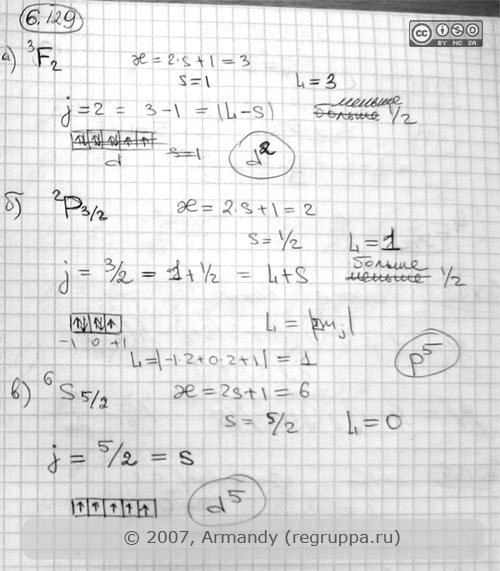 6.129
BY NC SA
а) ³F₂ ϰ = 2·s + 1 = 3
s = 1 L = 3
j = 2 = 3 − 1 = |L − S| меньше
больше 1/2
d s=1 d²
б) ²P₃/₂ ϰ = 2·s + 1 = 2
s = 1/2 L = 1
j = 3/2 = 1 + 1/2 = L + S больше
меньше 1/2
L = |Σmⱼ|
−1 0 +1
L = |−1·2 + 0·2 + 1| = 1 p⁵
в) ⁶S₅/₂ ϰ = 2s + 1 = 6
s = 5/2 L = 0
j = 5/2 = s
d⁵
© 2007, Armandy (regruppa.ru)